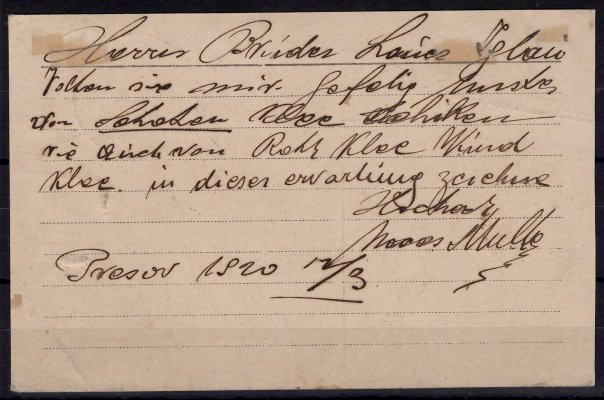 Herren Brüder Löwi Iglau
Wollen sie mir gefelig Muster
von Schoten Klee schiken
wie auch von Roth Klee Wund
Klee. in dieser erwartung zeichne
Hochacht
Moses Müller
Presov 1920 12/3